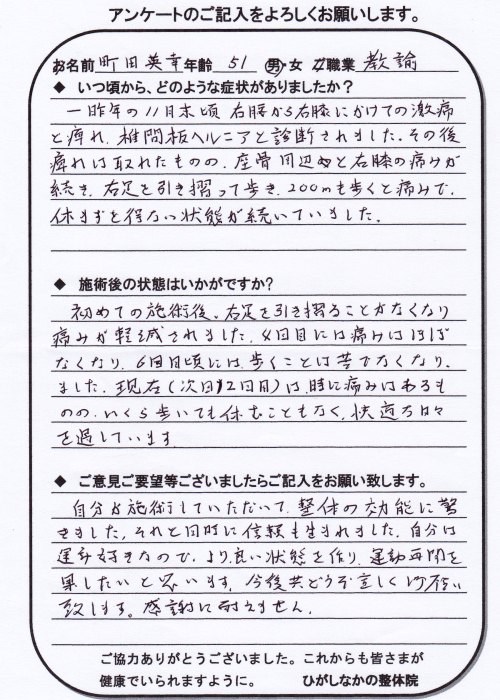 アンケートのご記入をよろしくお願いします。
お名前 町田英幸 年齢 51 男・女 ご職業 教諭
◆ いつ頃から、どのような症状がありましたか?
一昨年の11月末頃 右腰から右膝にかけての激痛
と痺れ、椎間板ヘルニアと診断されました。その後
痺れは取れたものの、座骨周辺と右膝の痛みが
続き、右足を引き摺って歩き、200mも歩くと痛みで、
休まずを得ない状態が続いていました。
◆ 施術後の状態はいかがですか?
初めての施術後、右足を引き摺ることがなくなり
痛みが軽減されました。4回目には痛みはほぼ
なくなり、6回目頃には、歩くことは苦でなくなり、
ました。現在(次回12回目)は、時に痛みはあるも
のの、いくら歩いても休むこともなく、快適な日々
を過しています。
◆ ご意見ご要望等ございましたらご記入をお願い致します。
自分も施術していただいて、整体の効能に驚
きました。それと同時に信頼も生まれました。自分は
運動好きなので、より良い状態を作り、運動再開を
果したいと思います。今後共どうぞ宜しくお願い
致します。感謝に耐えません。
ご協力ありがとうございました。これからも皆さまが
健康でいられますように。 ひがしなかの整体院